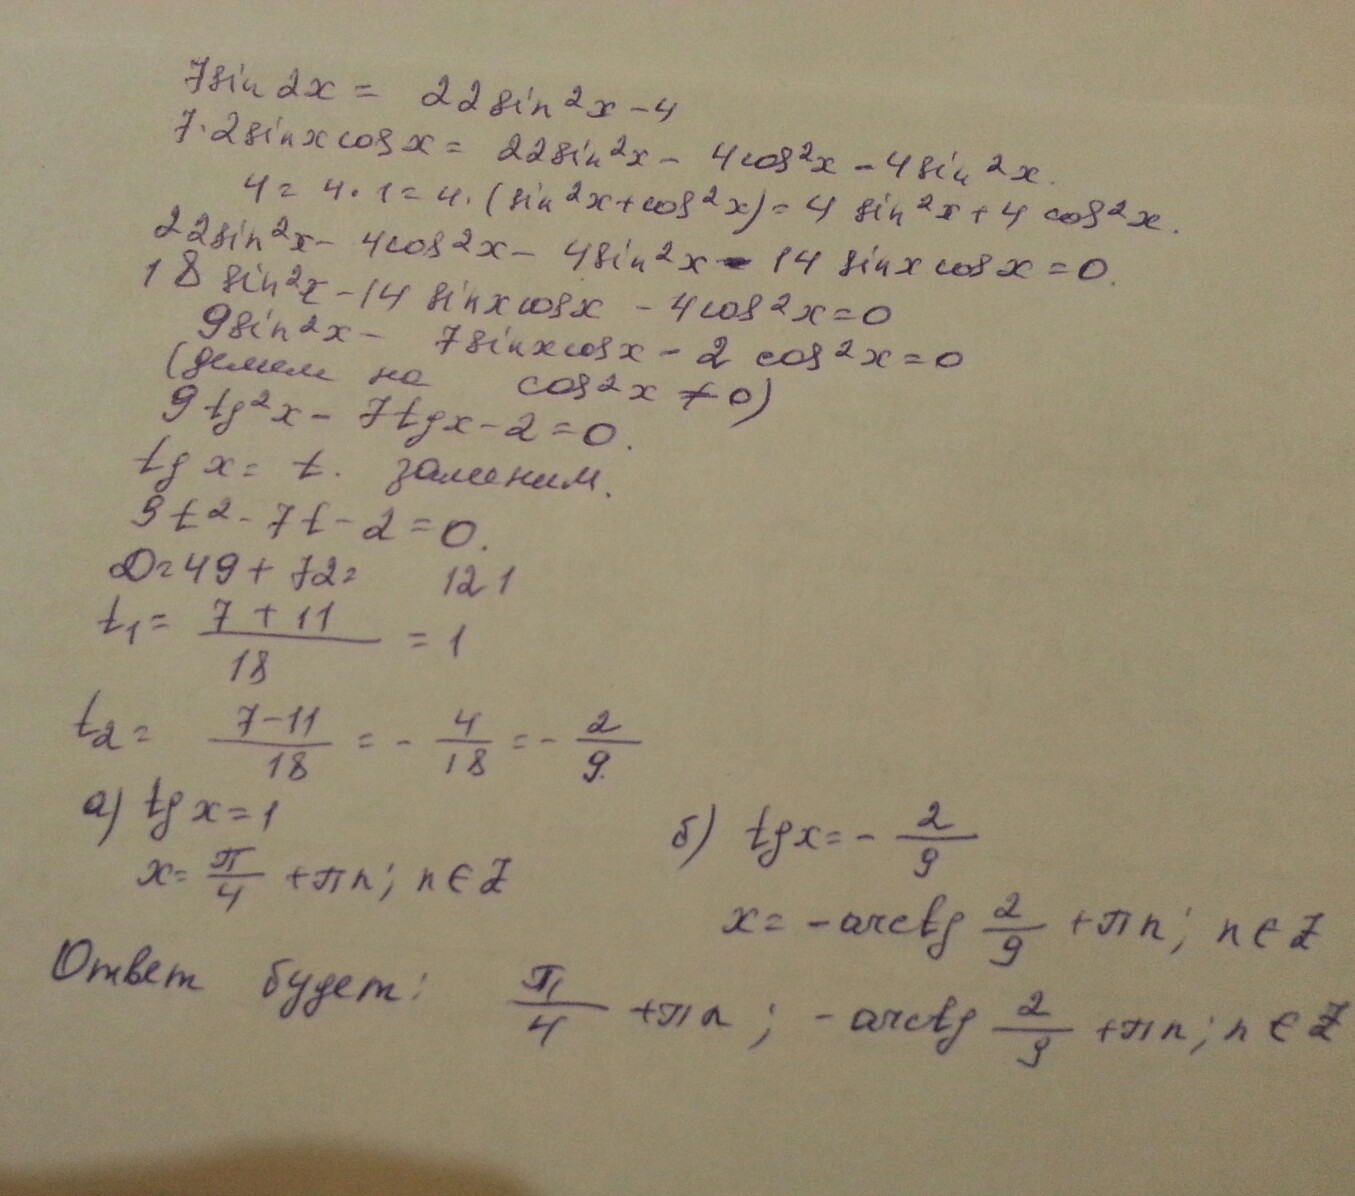 7sin 2x = 22sin²x - 4
7·2sinxcosx = 22sin²x - 4cos²x - 4sin²x.
4 = 4·1 = 4·(sin²x+cos²x) = 4 sin²x + 4 cos²x.
22sin²x - 4cos²x - 4sin²x - 14 sinx cosx = 0.
18 sin²x - 14 sinxcosx - 4cos²x = 0
9sin²x - 7sinxcosx - 2 cos²x = 0
(делим на cos²x ≠ 0)
9tg²x - 7tgx - 2 = 0.
tg x = t. заменим.
9t² - 7t - 2 = 0.
D = 49 + 72 = 121
t₁ = (7 + 11)/18 = 1
t₂ = (7-11)/18 = - 4/18 = - 2/9.
а) tg x = 1
x = π/4 + πn; n ∈ Z
б) tgx = - 2/9
x = - arctg 2/9 + πn; n ∈ Z
Ответ будет: π/4 + πn; - arctg 2/9 + πn; n ∈ Z